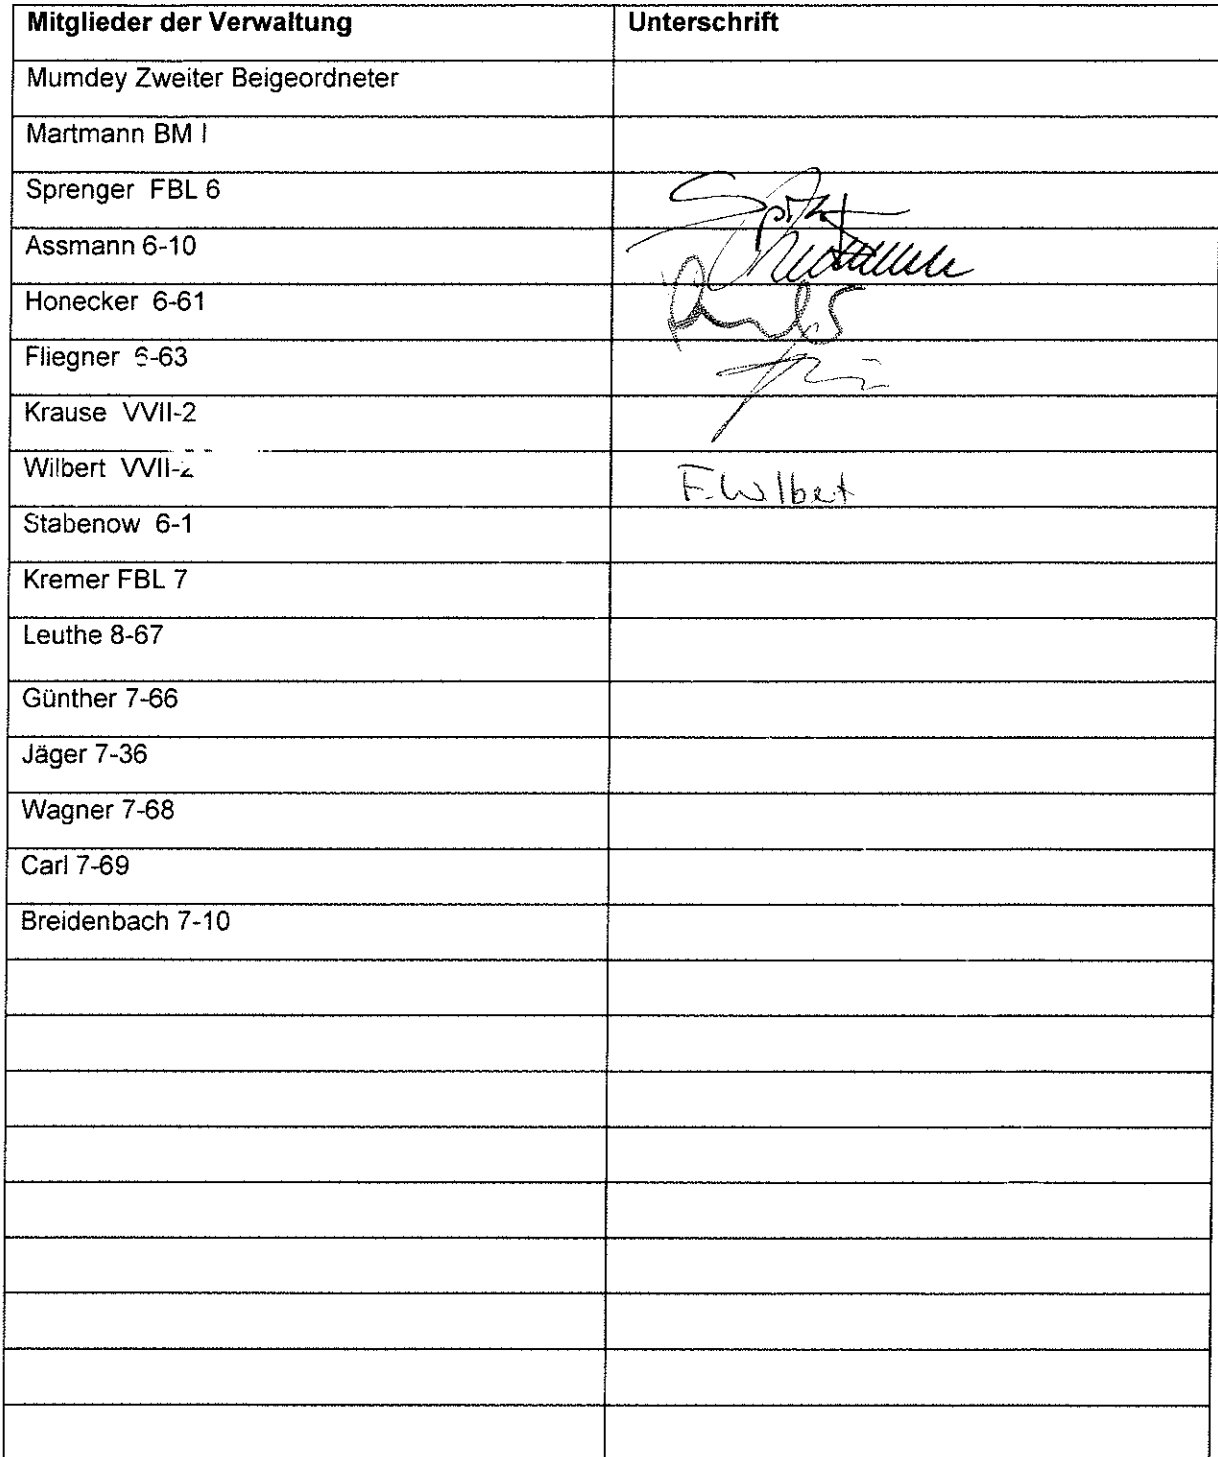 Mitglieder der Verwaltung Unterschrift
Mumdey Zweiter Beigeordneter
Martmann BM I
Sprenger FBL 6
Assmann 6-10
Honecker 6-61
Fliegner 6-63
Krause VVII-2
Wilbert VVII-2 F. Wilbert
Stabenow 6-1
Kremer FBL 7
Leuthe 8-67
Günther 7-66
Jäger 7-36
Wagner 7-68
Carl 7-69
Breidenbach 7-10